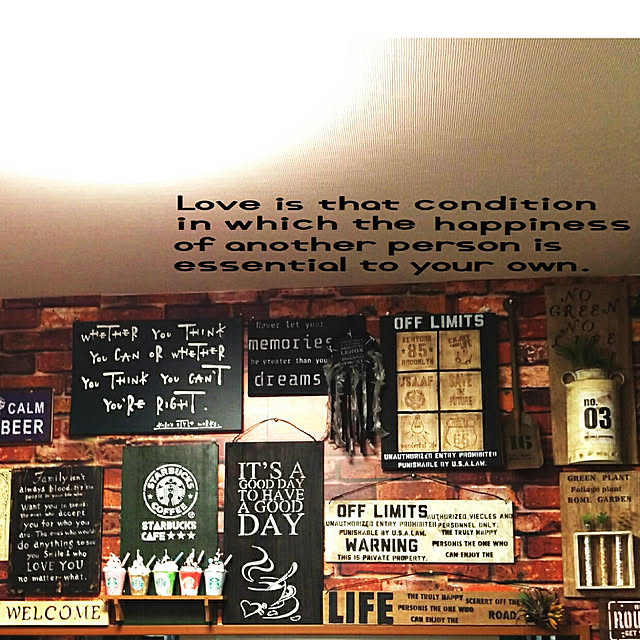 Love is that condition
in which the happiness
of another person is
essential to your own.
WHETHER YOU THINK
YOU CAN OR WHETHER
YOU THINK YOU CAN'T
YOU'RE RIGHT.
Never let your
memories
be greater than your
dreams
OFF LIMITS
85
BROOKLYN
USAAF
SAVE
65
UNAUTHORIZED ENTRY PROHIBITED
PUNISHABLE BY U.S.A. LAW.
NO
GREEN
NO
LIFE
no.
03
16
CALM
BEER
Family isn't
always blood.
want you in theirs
accept
you for who you
are. The ones who would
do anything to see
you smile & who
LOVE YOU
no matter what.
STARBUCKS
COFFEE
STARBUCKS
CAFE★★★
IT'S A
GOOD DAY
TO HAVE
A GOOD
DAY
OFF LIMITS
AUTHORIZED, VIECLES AND
UNAUTHORIZED ENTRY PROHIBITED
PERSONNEL ONLY.
PUNISHABLE BY U.S.A. LAW.
THE TRULY HAPPY
WARNING
PERSONIS THE ONE WHO
THIS IS PRIVATE PROPERTY.
CAN ENJOY THE
GREEN PLANT
Foliage plant
HOME GARDEN
WELCOME
LIFE
THE TRULY HAPPY
PERSONIS THE ONE WHO
CAN ENJOY THE
SCENERY OFF THE
ROAD